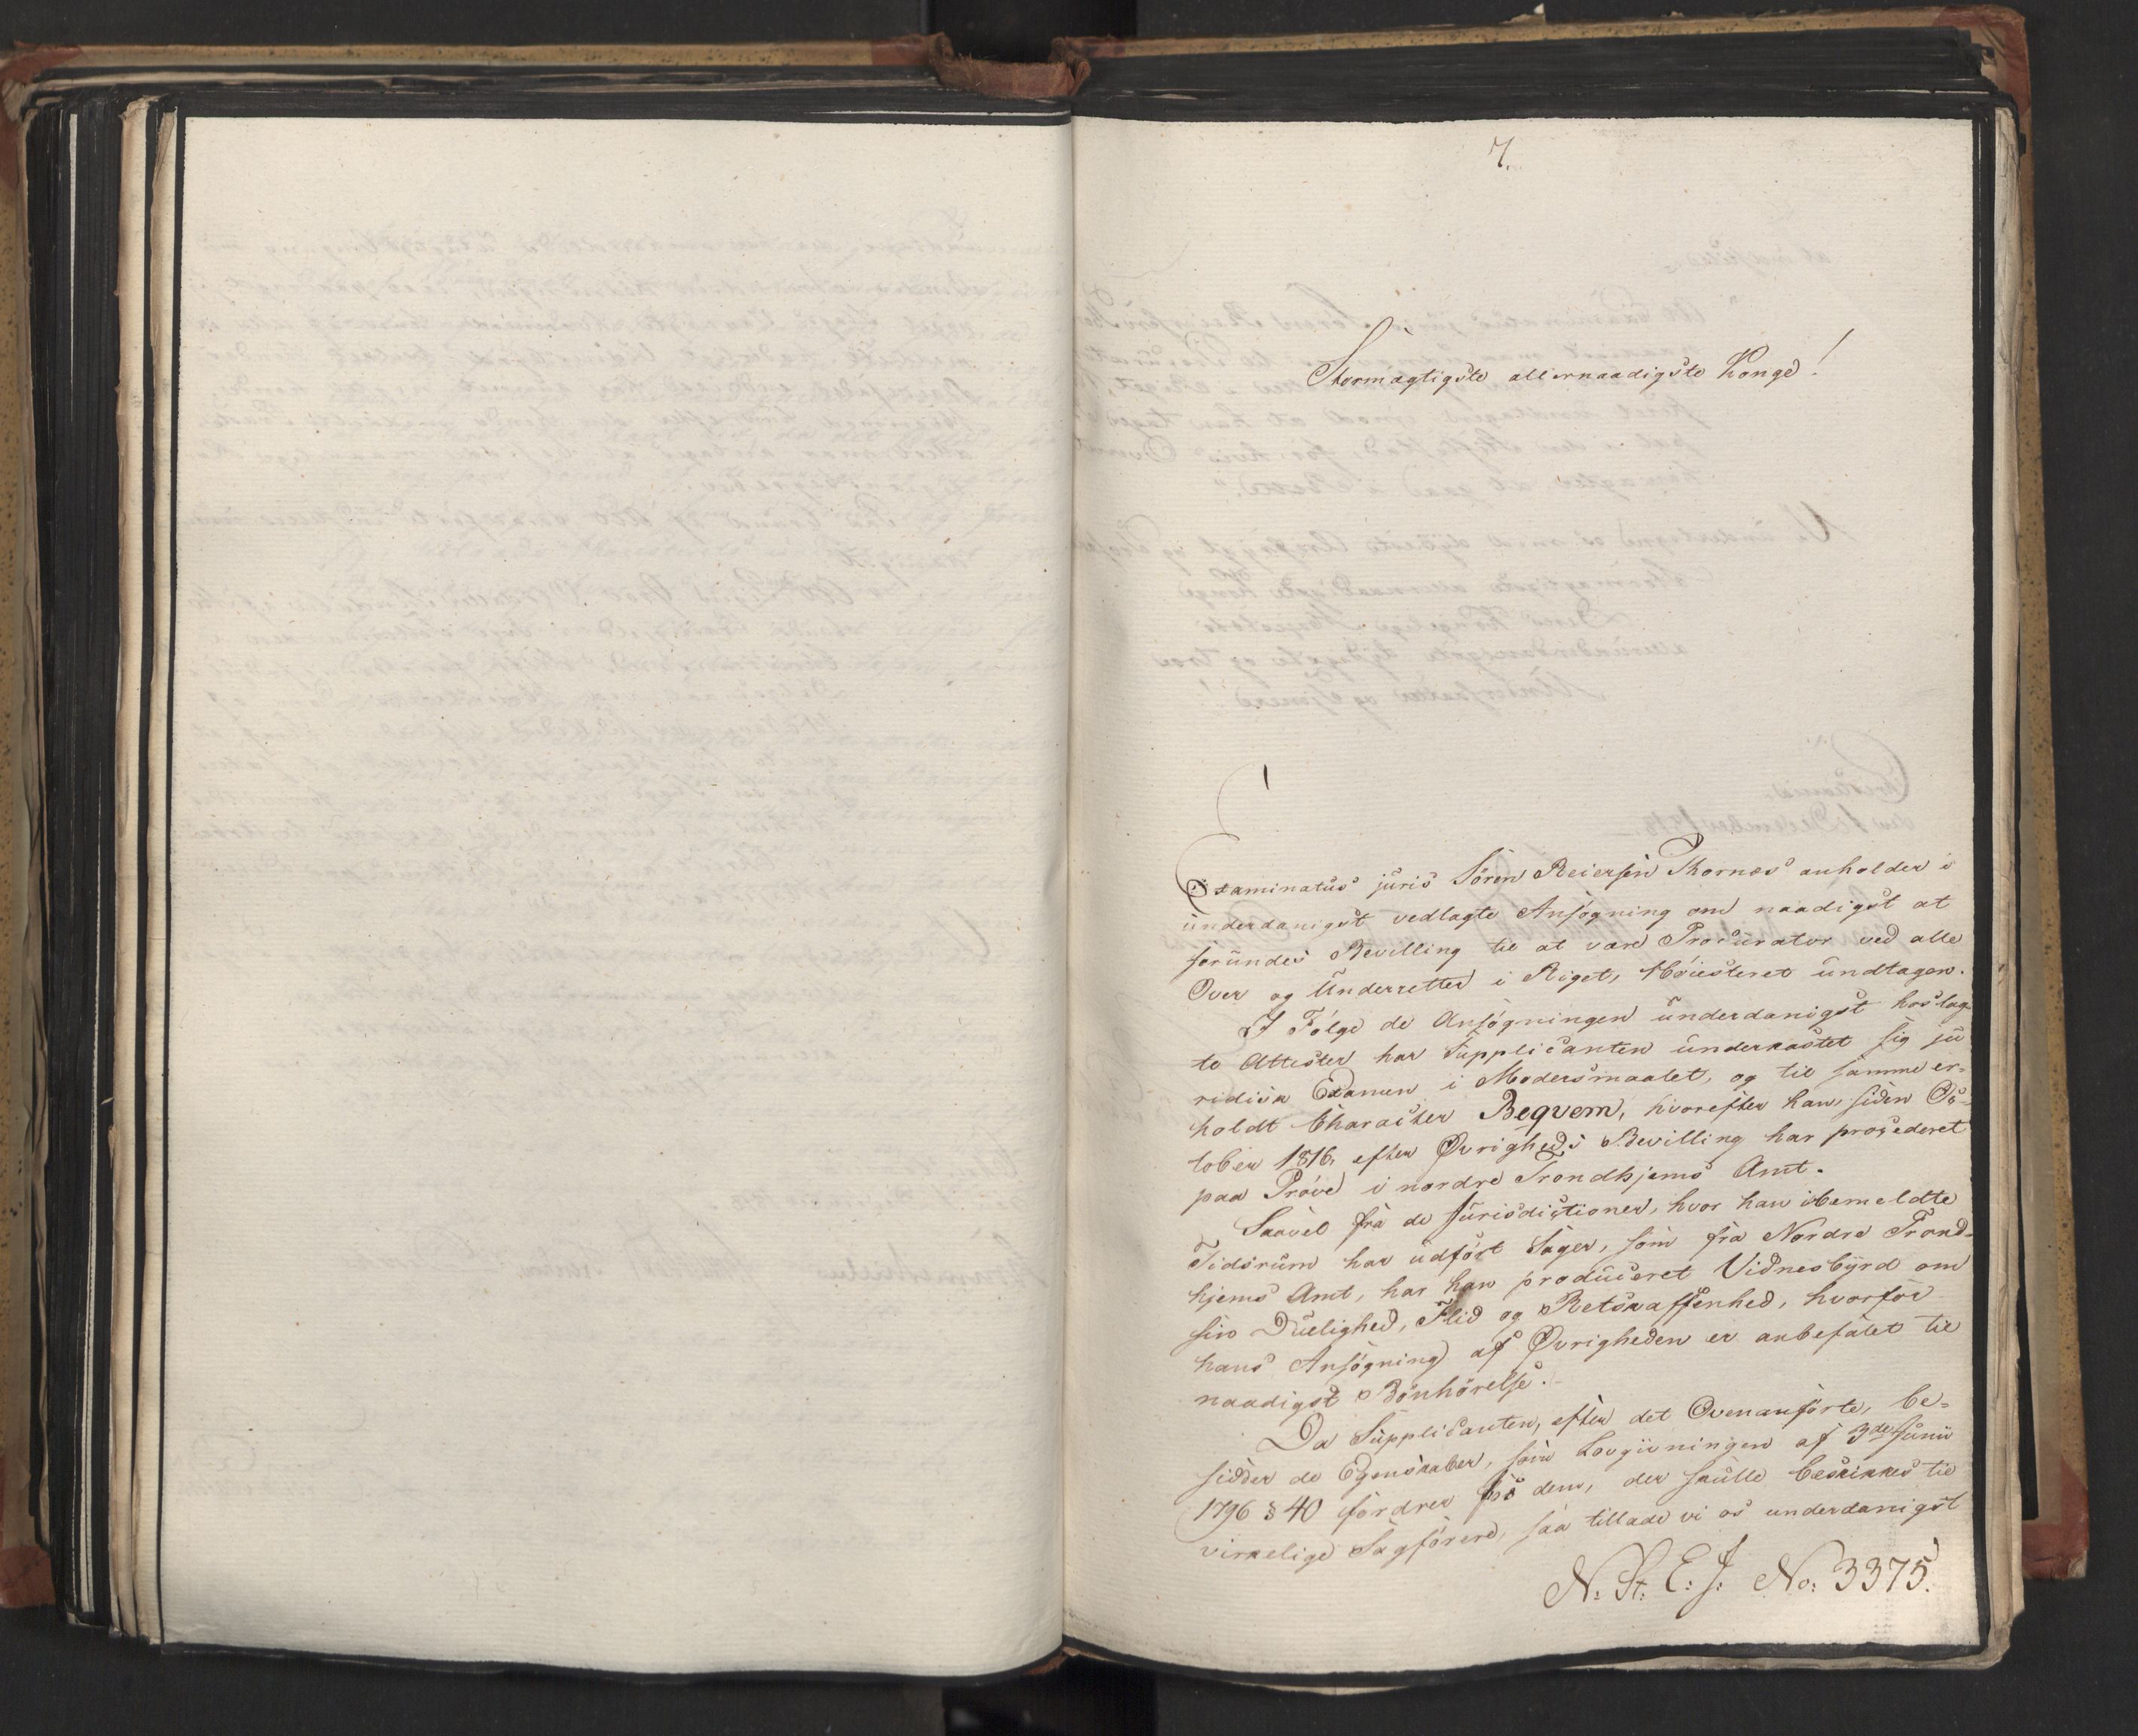 7.
Stormægtigste allernaadigste Konge!
Examinatus juris Sören Reiersen Thornæs anholder i
underdanigst vedlagte Ansøgning om naadigst at
forundes Bevilling til at være Procurator ved alle
Over og Underretter i Riget, Høiesteret undtagen.
I Følge de Ansøgningen underdanigst hoslag-
te Attester har Supplicanten underkastet sig ju
ridisk Examen i Modersmaalet, og til samme er-
holdt Character Beqvem, hvorefter han, siden Oc-
tober 1816, efter Øvrigheds Bevilling har procederet
paa Prøve i nordre Trondhjems Amt.
Saavel fra de Jurisdictioner, hvor han ibemeldte
Tidsrum har udført Sager, som fra Nordre Trond-
hjems Amt, har han produceret Vidnesbyrd om
sin Duelighed, Flid og Retskaffenhed, hvorfor
hans Ansøgning af Øvrigheden er anbefalet til
naadigst Bönhörelse.
Da Supplicanten, efter det Ovenanførte, be-
sidder de Egenskaber, som Lovgivningen af 3de Junii
1796 § 40 fordrer hos dem, der skulle beskikkes til
virkelige Sagførere, saa tillade vi os underdanigst
N: St: E: J: No: 3375.